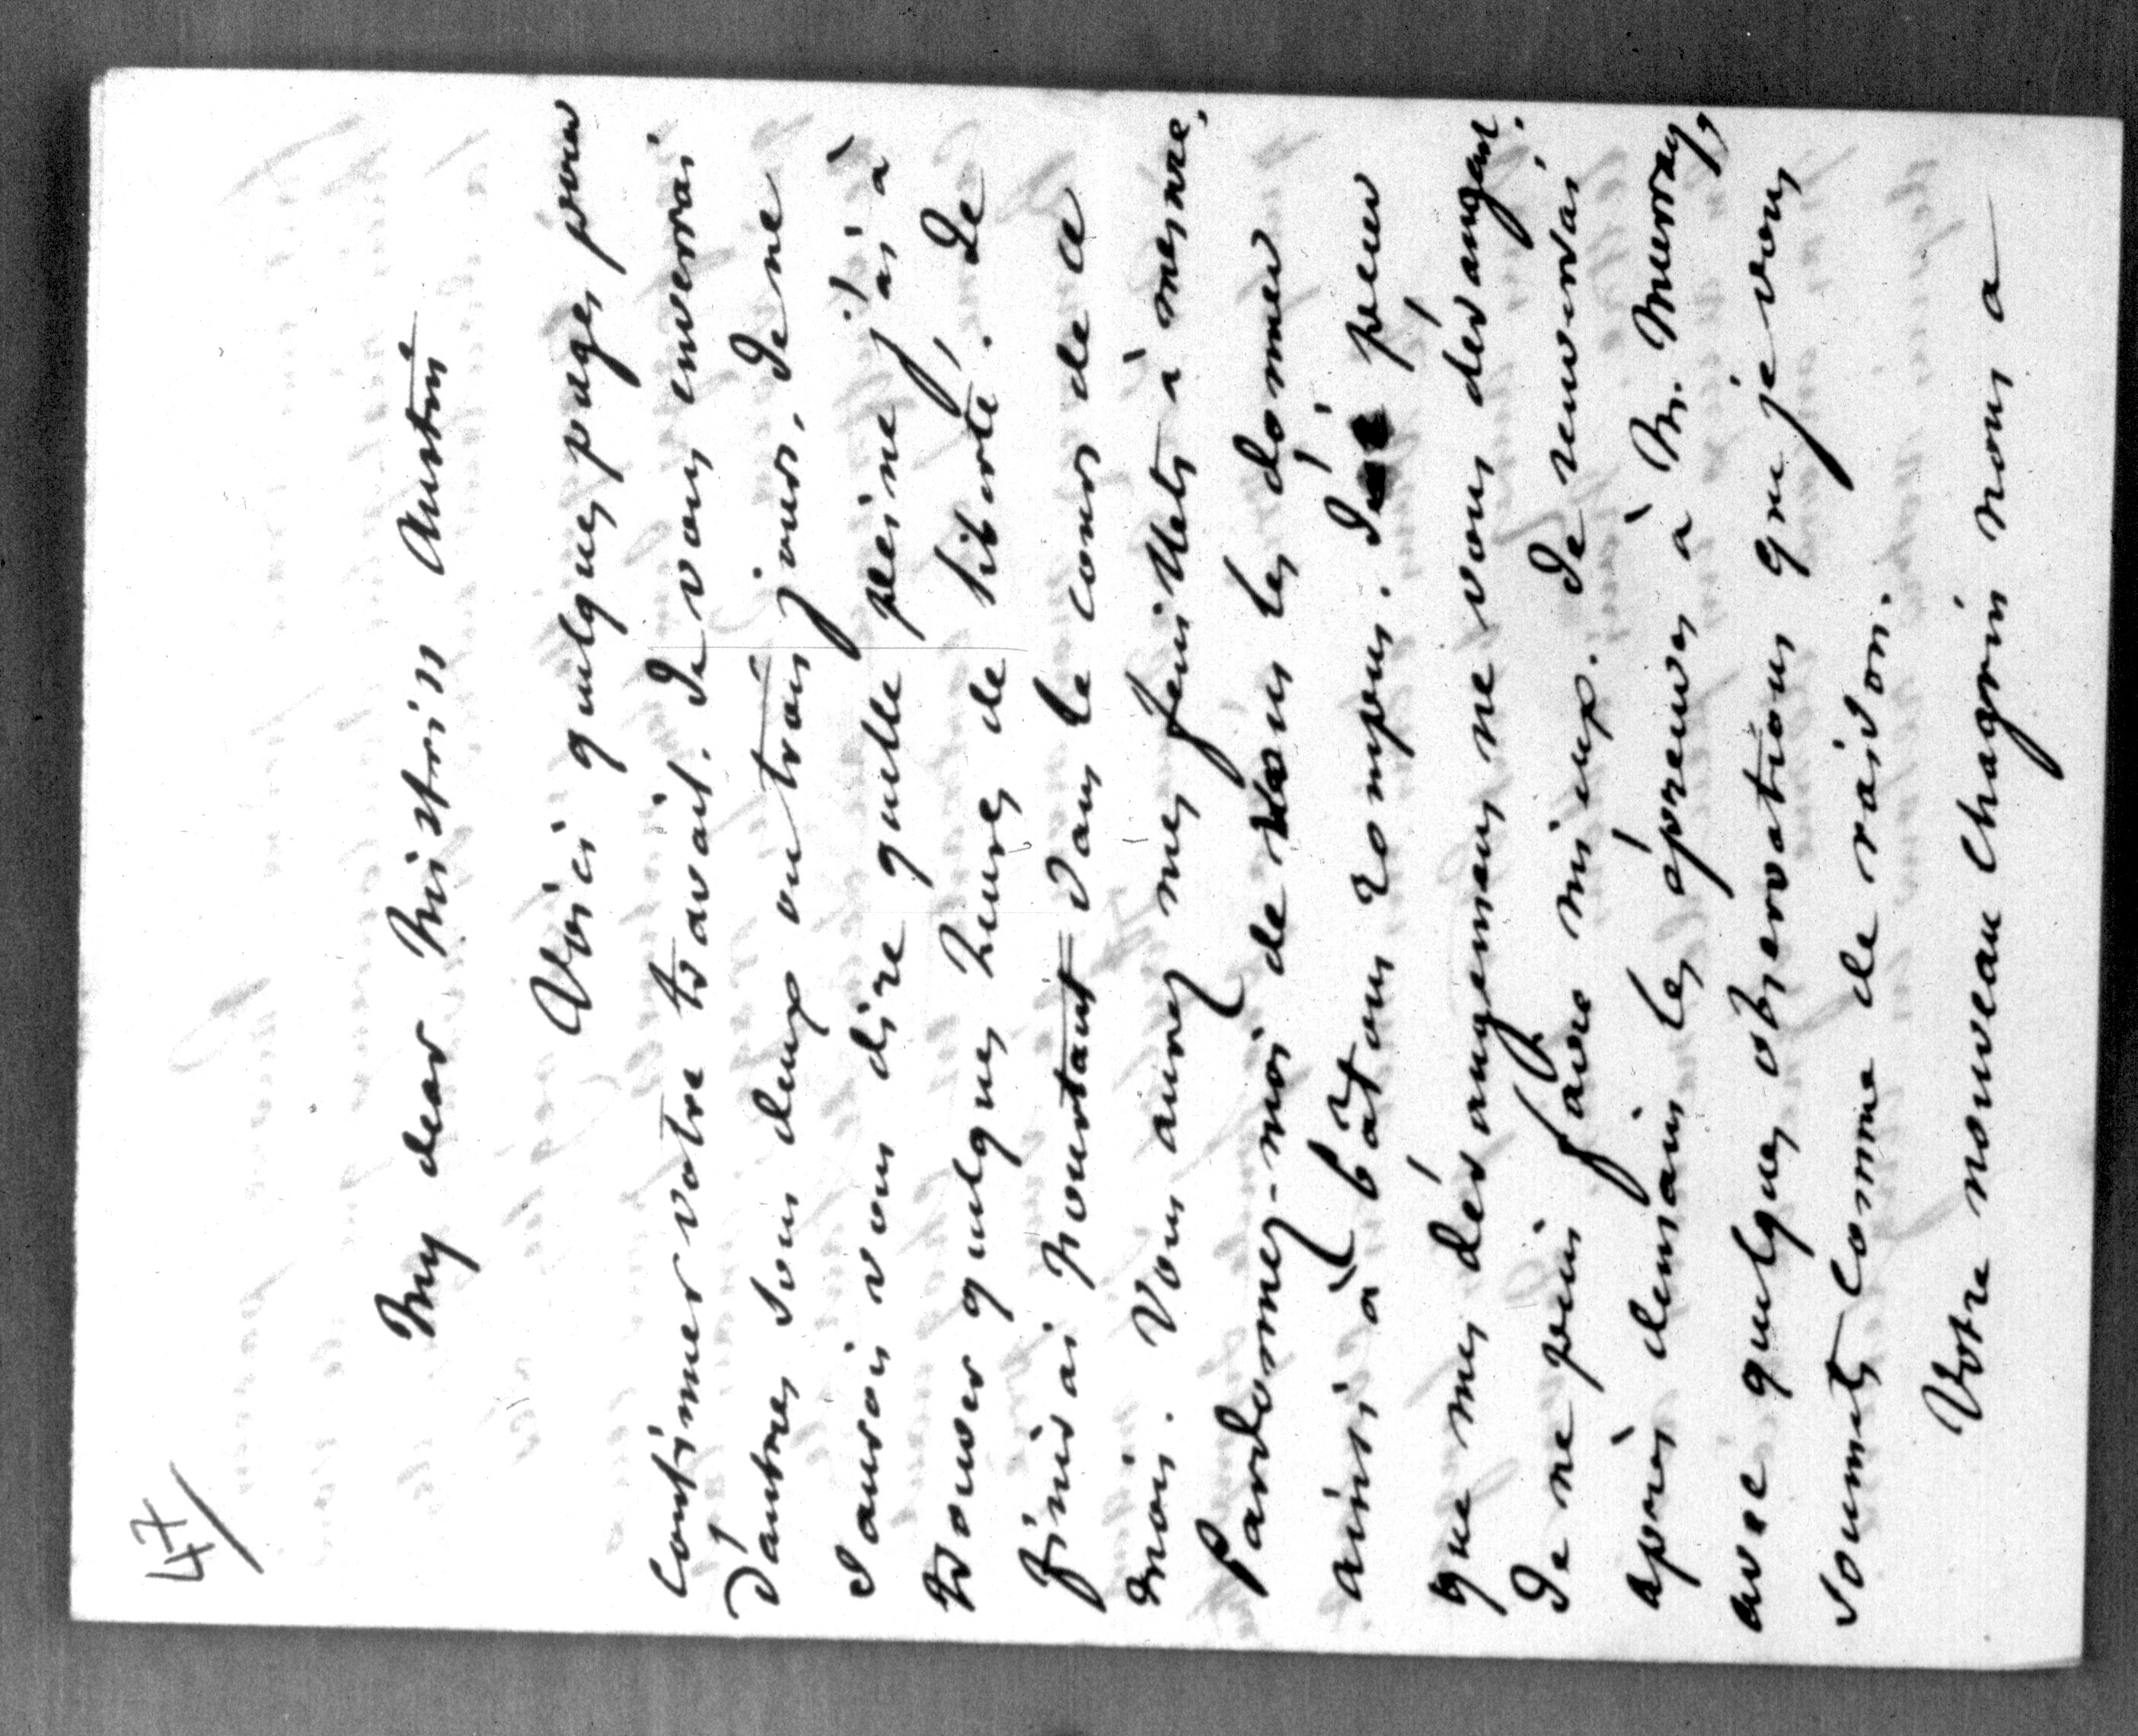 47/
My dear Mistriss Austin
Voici quelques pages pour
continuer votre travail. Je vous enverrai
d'autres sous deux ou trois jours, Je ne
saurois vous dire quelle peine j'ai à
trouver quelques heures de liberté. Je
finirai pourtant dans le cours de ce
mois. Vous aurez mes feuillets à mesure,
Pardonnez-moi de vous les donner
ainsi à bâtons rompus. J'ai peur
que mes dérangemens ne vous dérangent.
Je ne puis faire mieux. Je renverrai
après demain les épreuves à Mr. Murray,
avec quelques observations que je vous
soumets comme de raison.
Votre nouveau chagrin nous a